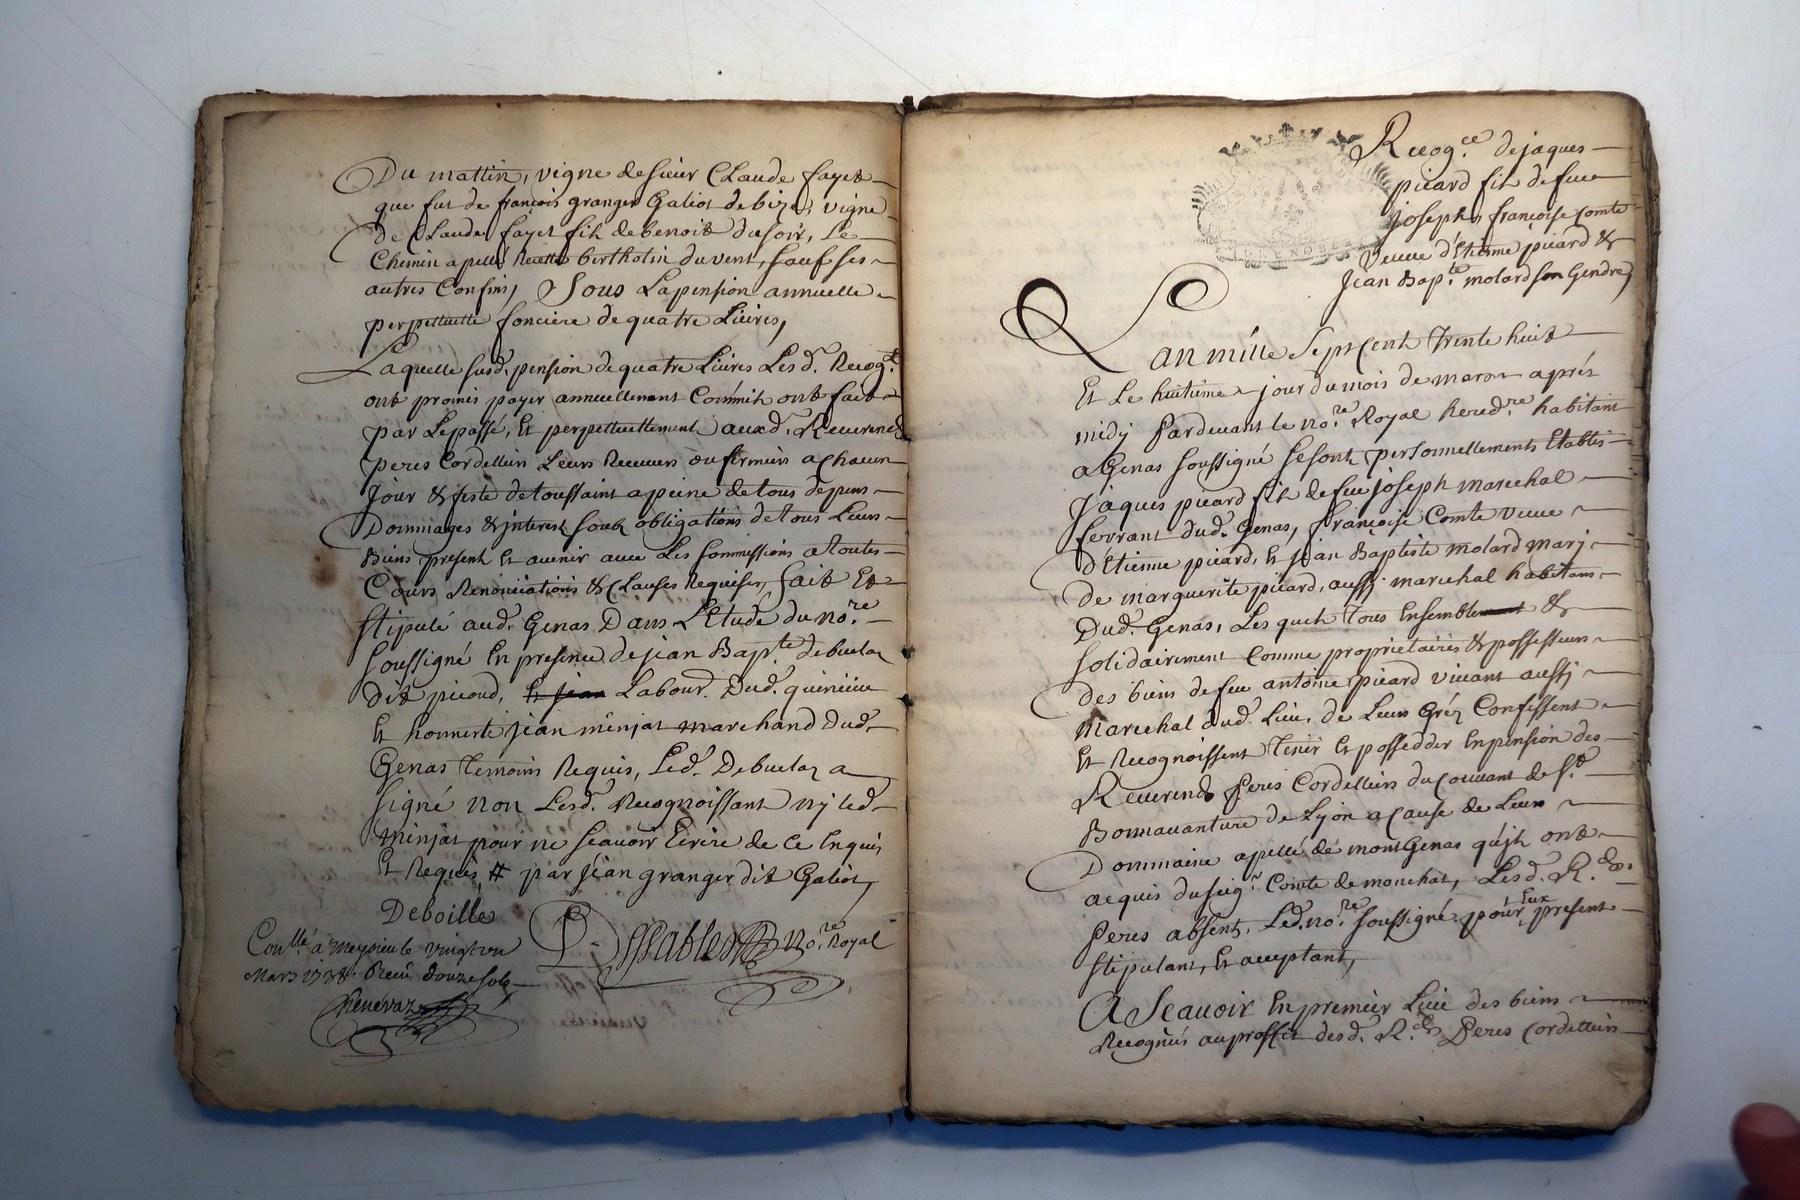 Du mattin, vigne de sieur Claude fayet
que fut de françois granger Galiot de bize, vigne
de Claude fayet fils de benoit du soir, Le
Chemin apellé Recette bertholin du vent, sauf ses
autres Confins, Sous La pension annuelle
perpettuelle fonciere de quatre Livres,
Laquelle susd. pension de quatre Livres Lesd. Recog.t
ont promis payer annuellement Commih ont fait
par Le passé, Et perpettuellement auxd. Reverend
peres Cordelliers Leurs Receveurs ou fermiers a chacun
Jour & feste de toussaint a peine de tous depens
Dommages & jnterest soub obligations de tous Leurs
Biens present Et avenir avec Les sommissions a toutes
Cours Renonciations & Clauses Requises, fait Et
stipulé aud. Genas Dans L'Etude du no.re
soussigné En presence de jean Bap.te debuclaz
dit picoud, Labour. Dud. quirieu
Et honneste jean minjat marchand dud.
Genas temoins Requis, Led. Debuclaz a
signé non Lesd. Recognoissant nj led.
minjat pour ne sçavoir Ecrire de Ce Enquis
Et Requis # par jean granger dit Galiot,
Deboille
Con.llé a meyzieu le vingt un
Mars 1738. Receu douze sols
Chenevaz
no.re Royal
Recog.ce de jaques
picard fils de feu
joseph, françoise comte
veuve d'Etienne picard &
Jean Bap.te molard son Gendre,
L'an mille sept cent trente huit
Et Le huitieme jour du mois de mars aprés
midy pardevant le no.re Royal hered.re habitant
a Genas soussigné se sont personnellements Etablis
Jaques picard fils de feu joseph marechal
ferrant dud. Genas, françoise Comte veuve
d'Etienne picard, Et jean Baptiste molard marj
de marguerite picard, aussj marechal habitans
Dud. Genas, Les quels tous Ensemble &
solidairement comme proprietaires & possesseurs
des biens de feu antoine picard vivant aussj
marechal dud. Lieu, de Leurs Gréz Confessent
Et Recognoissent tenir Et possedder En pension des
Reverends peres Cordelliers du Couvant de S.t
Bonnavanture de Lyon a Cause de Leur
Dommaine apellé de mont Genas qu'jls ont
acquis du seig.r Comte de monchat, Les d. R.ds
peres absent, Led. no.re soussigné pour Eux present
stipulant, Et acceptant,
A Sçavoir En premier Lieu des biens
Recognus au proffit desd. R.ds Peres cordelliers